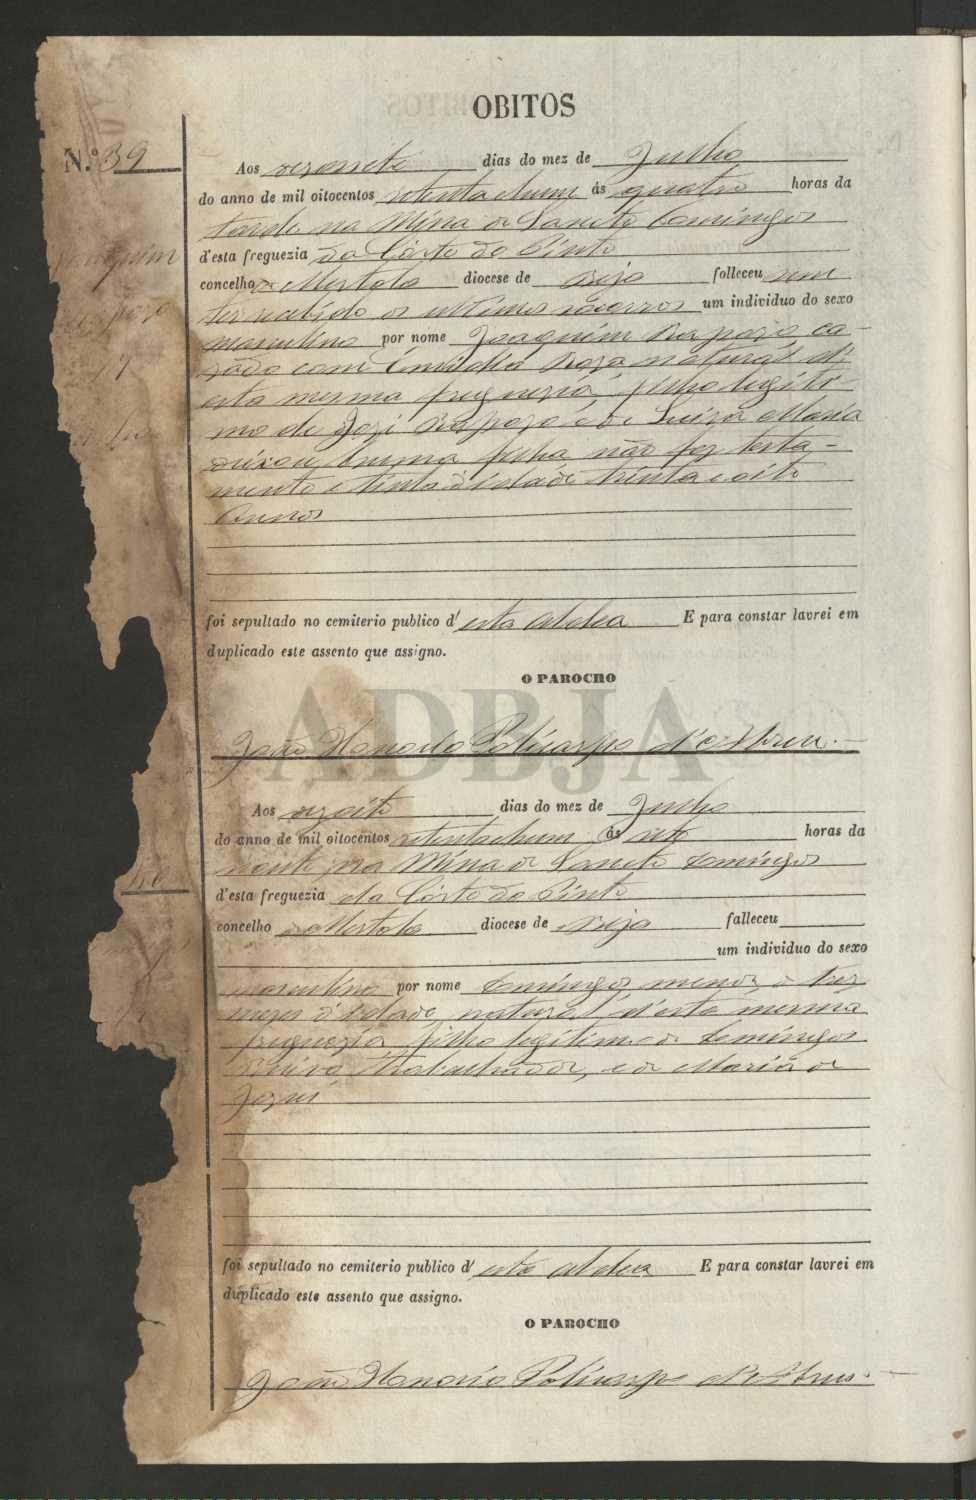 OBITOS
N.º 39
Aos dezasete dias do mez de Julho
do anno de mil oitocentos setenta e hum ás quatro horas da
tarde na Mina de Sancto Domingos
d'esta freguezia da Côrte do Pinto
concelho de Mertola diocese de Beja falleceu sem
ter recebido os ultimos socorros um individuo do sexo
masculino por nome Joaquim Rapozo ca-
zado com Roza natural d'
esta mesma freguezia, filho legiti-
mo de Jozé Rapozo e de Luiza Maria
deixou huma filha não fez testa-
mento e tinha d'idade trinta e oito
annos
Joaquim
Rapozo
foi sepultado no cemiterio publico d'esta aldea E para constar lavrei em
duplicado este assento que assigno.
O PAROCHO
ADBJA
João Honorio Policarpo d'Abreu.
40
Aos dezoito dias do mez de Julho
do anno de mil oitocentos setenta e hum ás sete horas da
noute na Mina de Sancto Domingos
d'esta freguezia da Côrte do Pinto
concelho de Mertola diocese de Beja falleceu
um individuo do sexo
masculino por nome Domingos, menor, de trez
mezes d'idade, natural d'esta mesma
freguezia, filho legitimo de Domingos
trabalhador, e de Maria de
Jezus
foi sepultado no cemiterio publico d'esta aldea E para constar lavrei em
duplicado este assento que assigno.
O PAROCHO
João Honorio Policarpo d'Abreu.